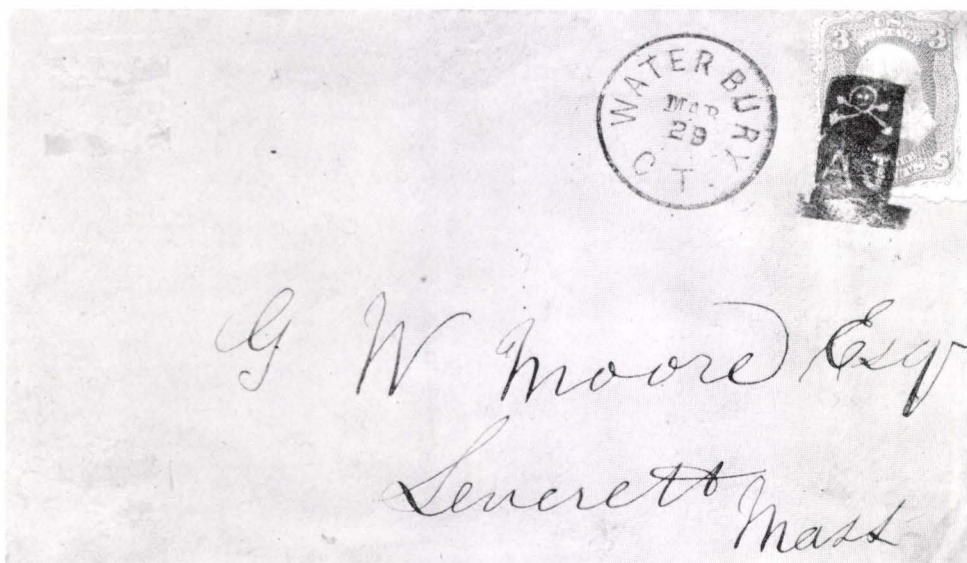 WATERBURY
MAR
29
CT.
3 3
G W Moore Esq
Leverett
Mass